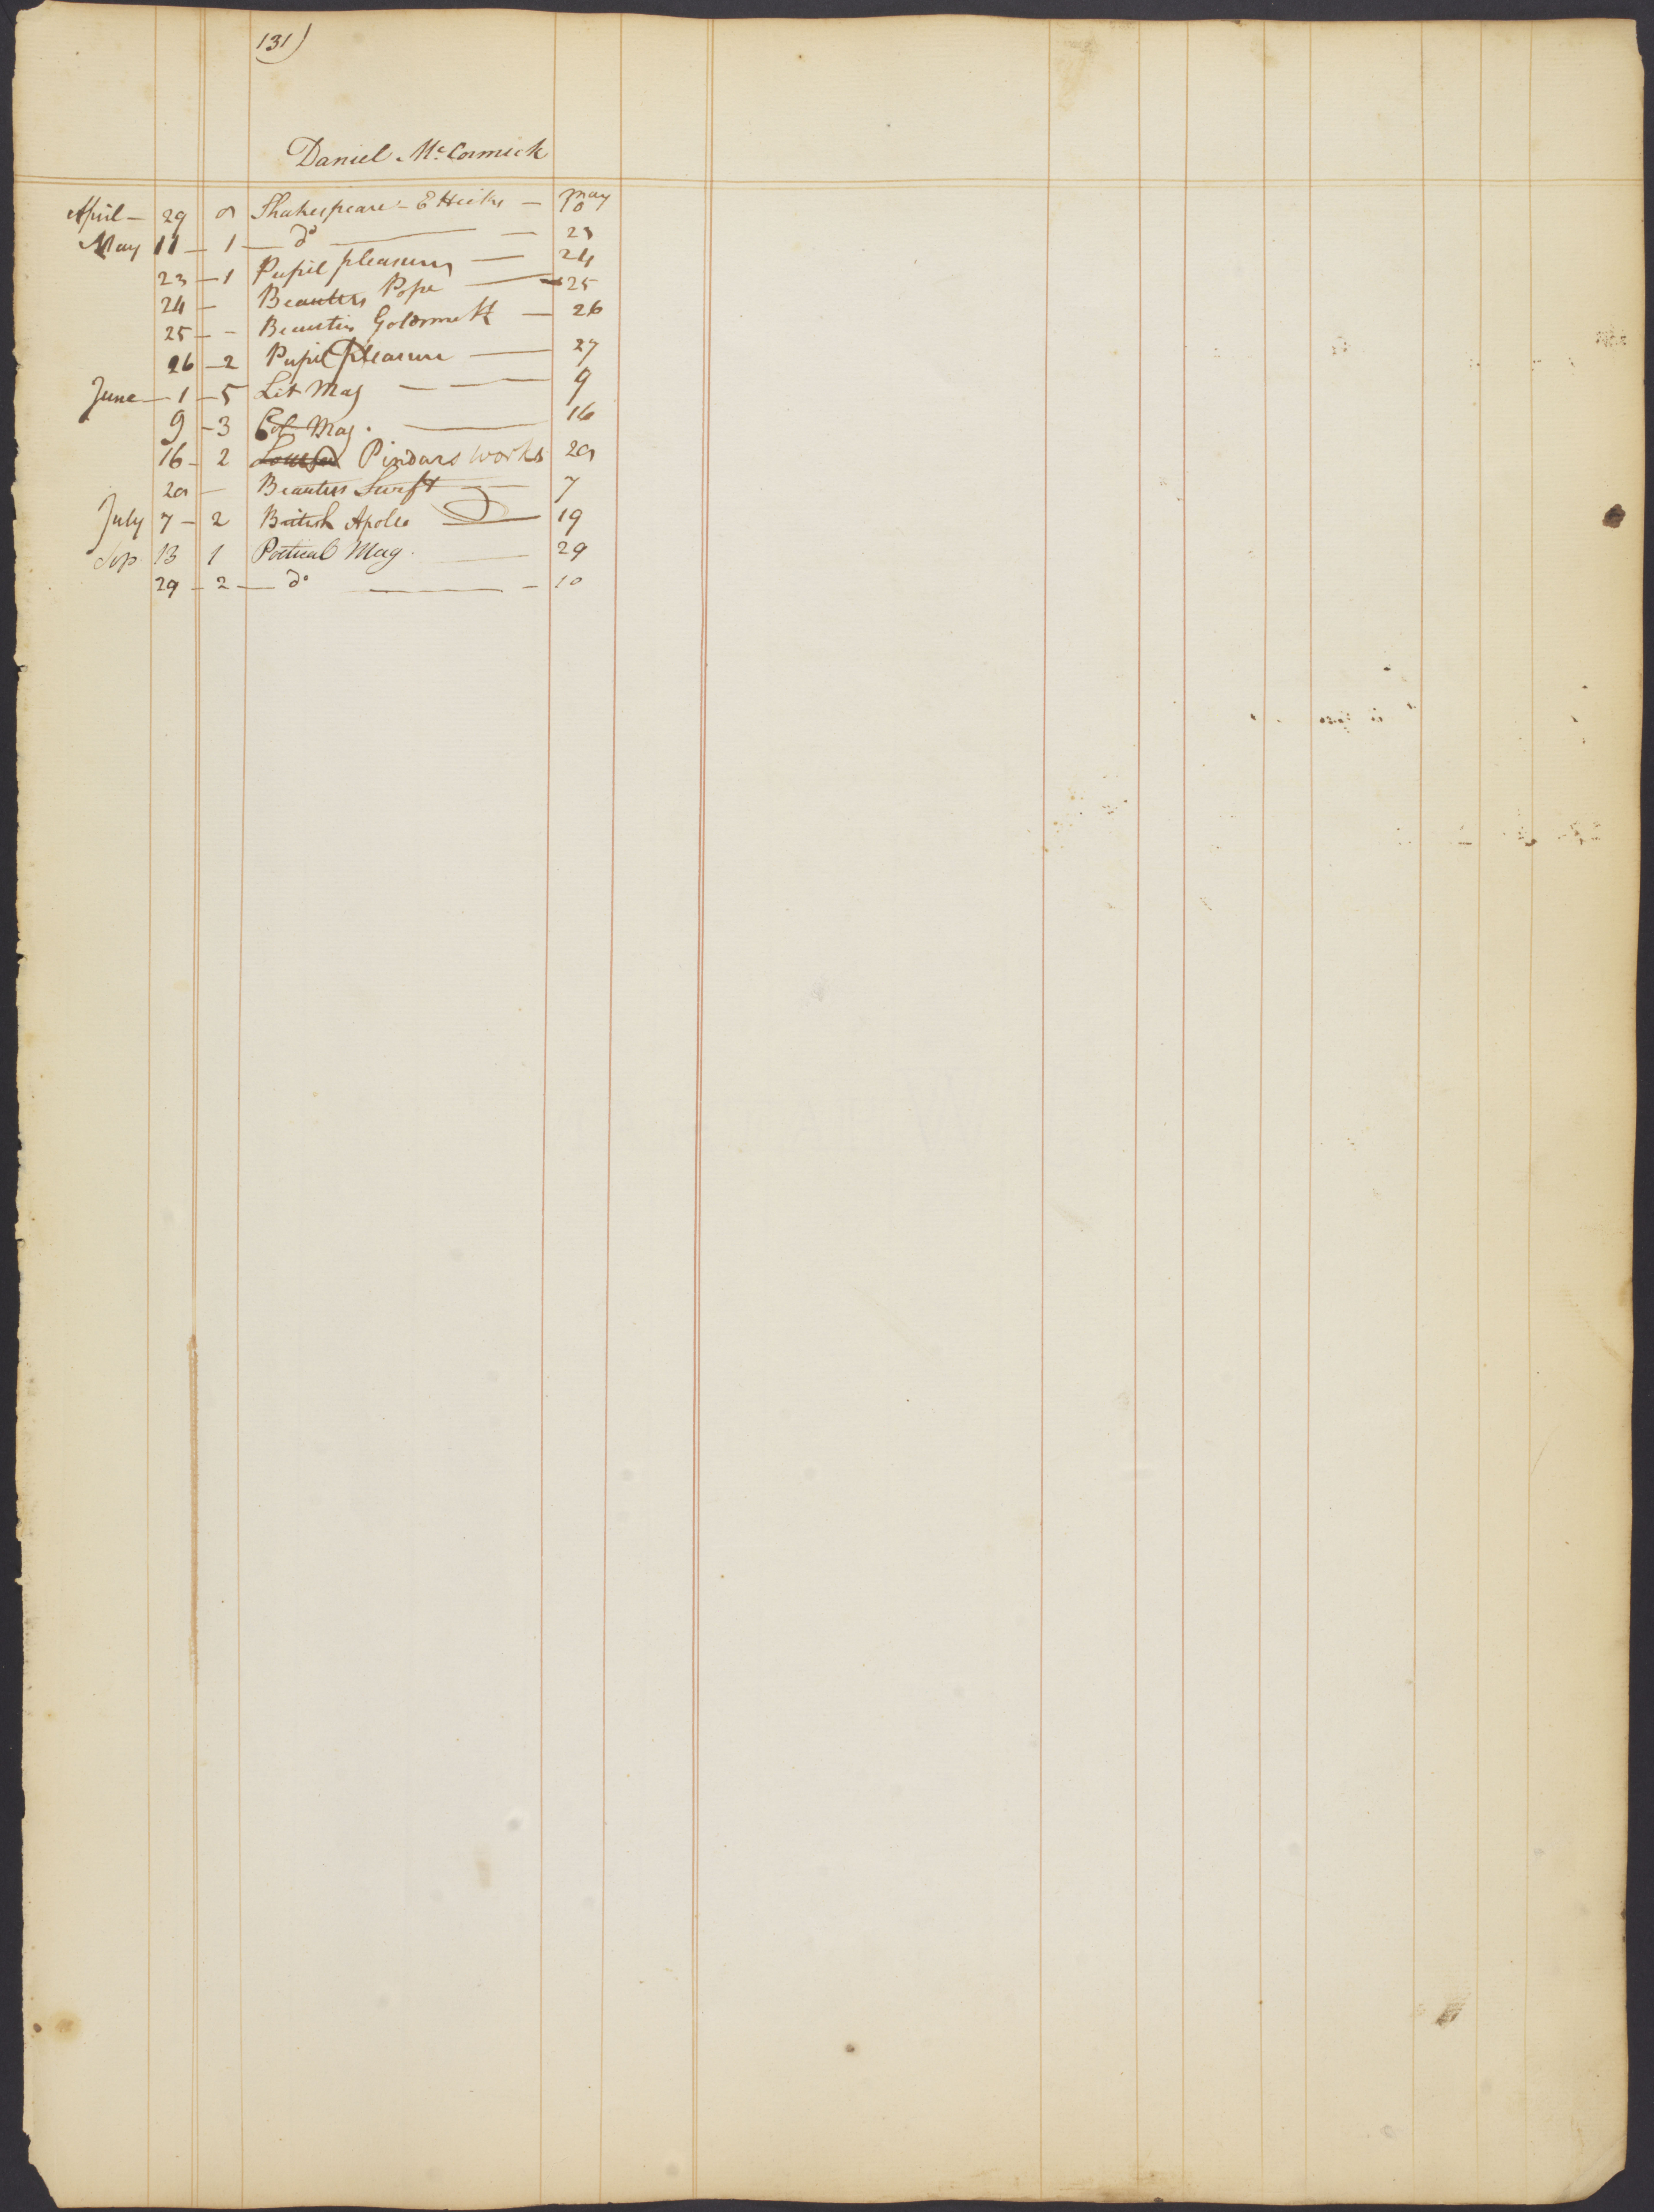 131)
Daniel McCormick
April — 29 Shakespeare — May 10
May 11 — 1 — do — 23
23 — 1 Pupil pleasure — 24
24 — Beauties Pope — 25
25 — - Beauties Goldsmith — 26
26 — 2 Pupil pleasure — 27
June — 1 — 5 Lit Mag — — — 9
9 - 3 Col Mag. — 16
16 - 2 Pindars works 29
29 — Beauties Swift — 7
July 7 — 2 British Apollo — 19
Sep 13 1 Poetical Mag. — 29
29 — 2 — do — — 10